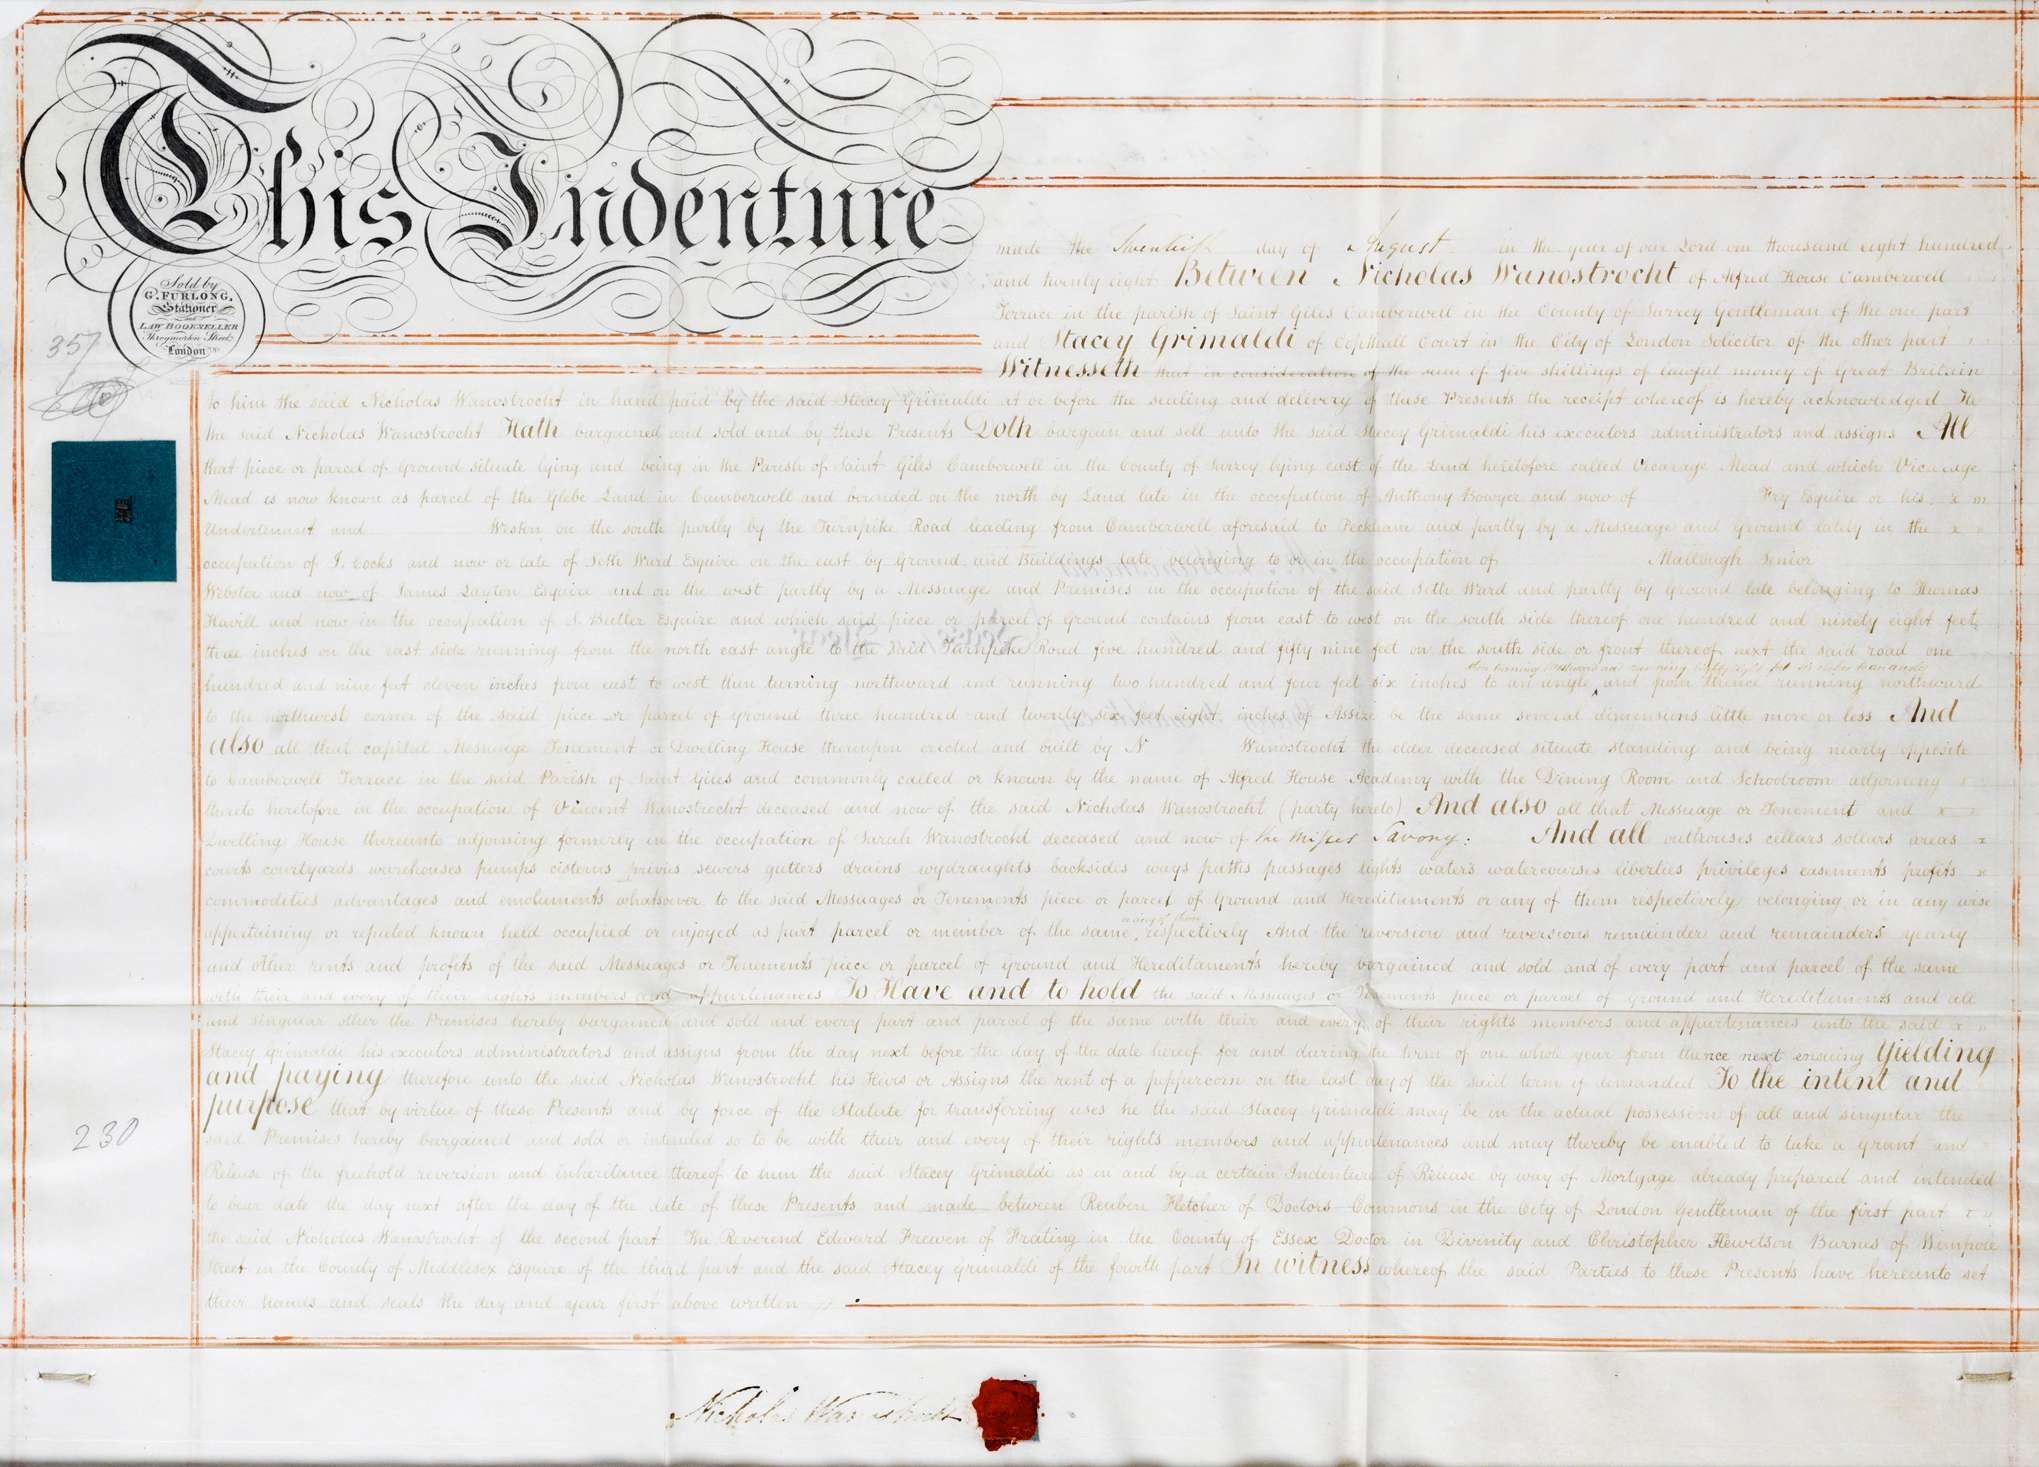 This Indenture
Sold by
G. FURLONG,
Stationer
and
LAW BOOKSELLER
Throgmorton Street
London
357
made the Twentieth day of August in the year of our Lord one thousand eight hundred
and twenty eight Between Nicholas Wanostrocht of Alfred House Camberwell
Terrace in the parish of Saint Giles Camberwell in the County of Surrey Gentleman of the one part
and Stacey Grimaldi of Copthall Court in the City of London Solicitor of the other part
Witnesseth that in consideration of the sum of five shillings of lawful money of Great Britain
to him the said Nicholas Wanostrocht in hand paid by the said Stacey Grimaldi at or before the sealing and delivery of these Presents the receipt whereof is hereby acknowledged He
the said Nicholas Wanostrocht Hath bargained and sold and by these Presents Doth bargain and sell unto the said Stacey Grimaldi his executors administrators and assigns All
that piece or parcel of Ground situate lying and being in the Parish of Saint Giles Camberwell in the County of Surrey lying east of the Land heretofore called Vicarage Mead and which Vicarage
Mead is now known as parcel of the Glebe Land in Camberwell and bounded on the north by Land late in the occupation of Anthony Bowyer and now of Fry Esquire or his
Undertenant and on the south partly by the Turnpike Road leading from Camberwell aforesaid to Peckham and partly by a Messuage and Ground lately in the
occupation of J. Cocks and now or late of Seth Ward Esquire on the east by Ground and Buildings late belonging to or in the occupation of Mallough Senior
Webster and now of James Layton Esquire and on the west partly by a Messuage and Premises in the occupation of the said Seth Ward and partly by Ground late belonging to Thomas
Havill and now in the occupation of S. Butler Esquire and which said piece or parcel of Ground contains from east to west on the south side thereof one hundred and ninety eight feet
three inches on the east side running from the north east angle to the said Turnpike Road five hundred and fifty nine feet on the south side or front thereof next the said road one
then turning Westward and running eighty eight feet six inches to an angle
hundred and nine feet eleven inches from east to west then turning northward and running two hundred and four feet six inches to an angle and from thence running northward
to the northwest corner of the said piece or parcel of Ground three hundred and twenty six feet eight inches of Assize be the same several dimensions little more or less And
also all that capital Messuage Tenement or Dwelling House thereupon erected and built by N Wanostrocht the elder deceased situate standing and being nearly opposite
to Camberwell Terrace in the said Parish of Saint Giles and commonly called or known by the name of Alfred House Academy with the Dining Room and Schoolroom adjoining
thereto heretofore in the occupation of Vincent Wanostrocht deceased and now of the said Nicholas Wanostrocht (party hereto) And also all that Messuage or Tenement and
Dwelling House thereunto adjoining formerly in the occupation of Sarah Wanostrocht deceased and now of the Misses Savory: And all outhouses cellars sollars areas
courts courtyards warehouses pumps cisterns privies sewers gutters drains wydraughts backsides ways paths passages lights waters watercourses liberties privileges easements profits
commodities advantages and emoluments whatsoever to the said Messuages or Tenements piece or parcel of Ground and Hereditaments or any of them respectively belonging or in any wise
or any of them
appertaining or reputed known held occupied or enjoyed as part parcel or member of the same respectively And the reversion and reversions remainder and remainders yearly
and other rents and profits of the said Messuages or Tenements piece or parcel of Ground and Hereditaments hereby bargained and sold and of every part and parcel of the same
with their and every of their rights members and appurtenances To Have and to hold the said Messuages or Tenements piece or parcel of Ground and Hereditaments and all
and singular other the Premises hereby bargained and sold and every part and parcel of the same with their and every of their rights members and appurtenances unto the said
Stacey Grimaldi his executors administrators and assigns from the day next before the day of the date hereof for and during the term of one whole year from thence next ensuing Yielding
and paying therefore unto the said Nicholas Wanostrocht his Heirs or Assigns the rent of a peppercorn on the last day of the said term if demanded To the intent and
purpose that by virtue of these Presents and by force of the Statute for transferring uses he the said Stacey Grimaldi may be in the actual possession of all and singular the
230
said Premises hereby bargained and sold or intended so to be with their and every of their rights members and appurtenances and may thereby be enabled to take a Grant and
Release of the freehold reversion and inheritance thereof to him the said Stacey Grimaldi as in and by a certain Indenture of Release by way of Mortgage already prepared and intended
to bear date the day next after the day of the date of these Presents and made between Reuben Fletcher of Doctors Commons in the City of London Gentleman of the first part
the said Nicholas Wanostrocht of the second part The Reverend Edward Frewen of Frating in the County of Essex Doctor in Divinity and Christopher Hewetson Barnes of Wimpole
Street in the County of Middlesex Esquire of the third part and the said Stacey Grimaldi of the fourth part In witness whereof the said Parties to these Presents have hereunto set
their hands and seals the day and year first above written
Nicholas Wanostrocht